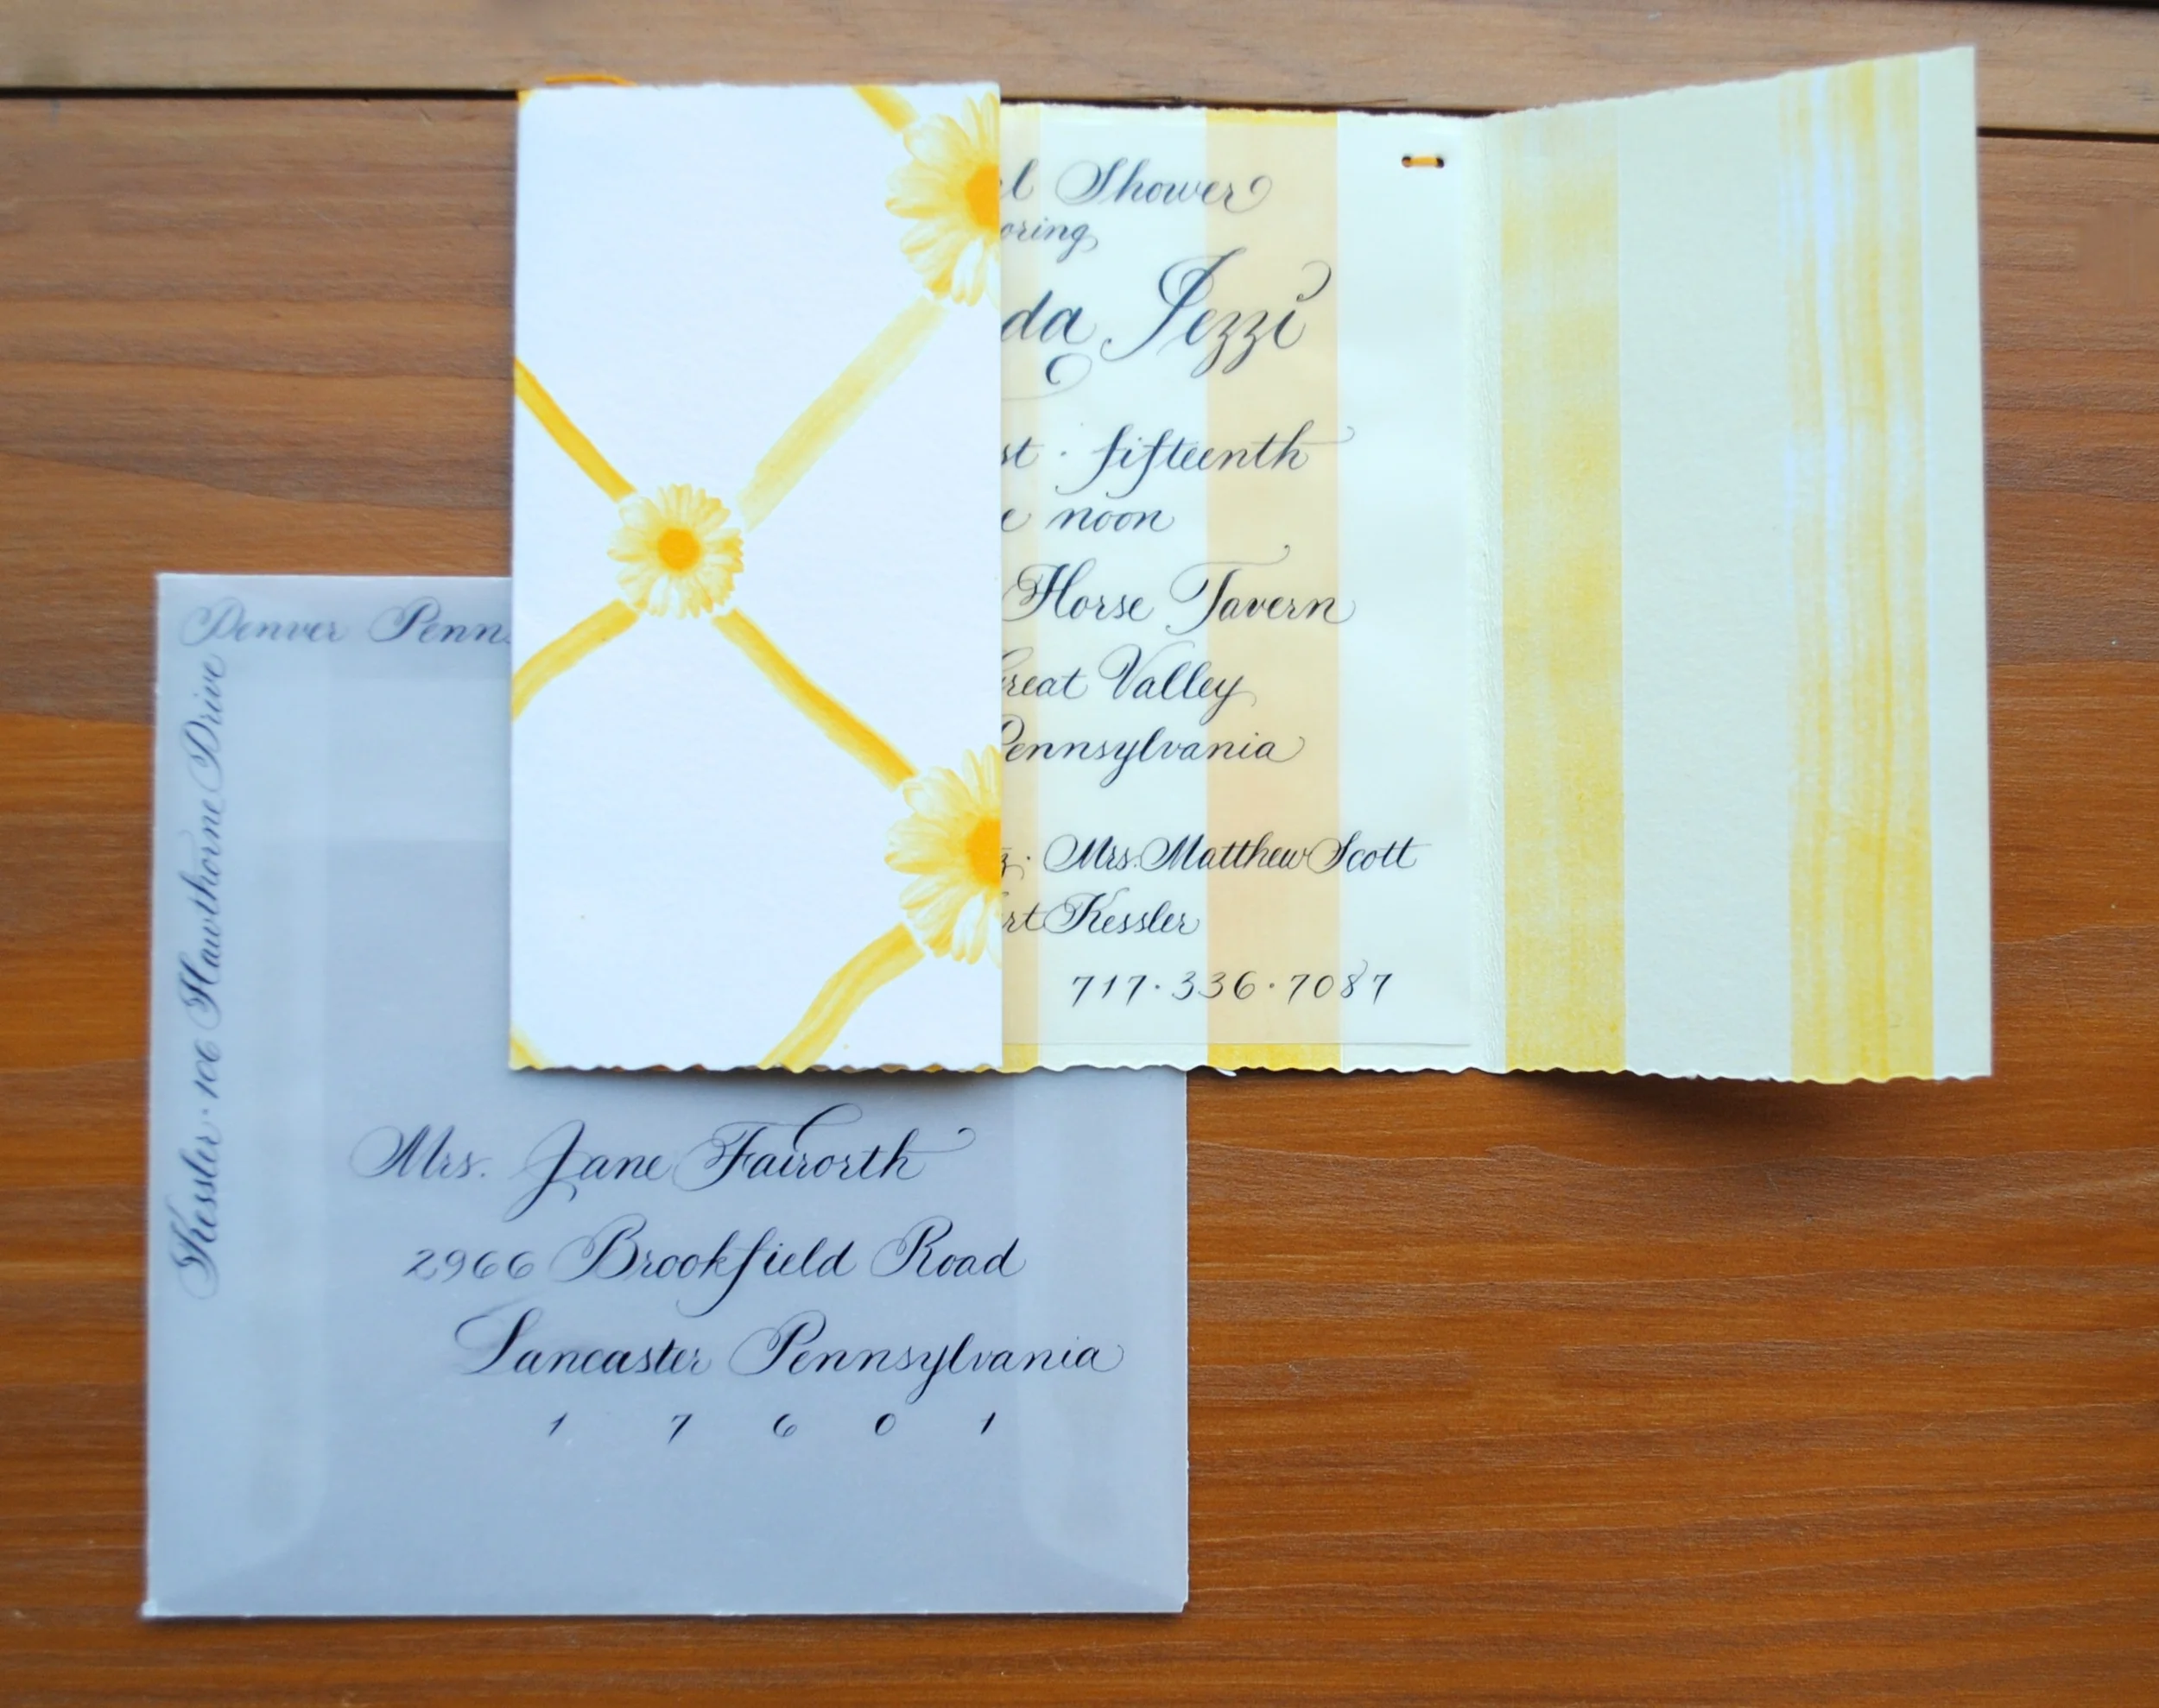 l Shower
oring
da Iezzi
st · fifteenth
e noon
Horse Tavern
Great Valley
Pennsylvania
z · Mrs. Matthew Scott
rt Kessler
717·336·7087
Denver Penns
Kessler · 106 Hawthorne Drive
Mrs. Jane Fairorth
2966 Brookfield Road
Lancaster Pennsylvania
1 7 6 0 1